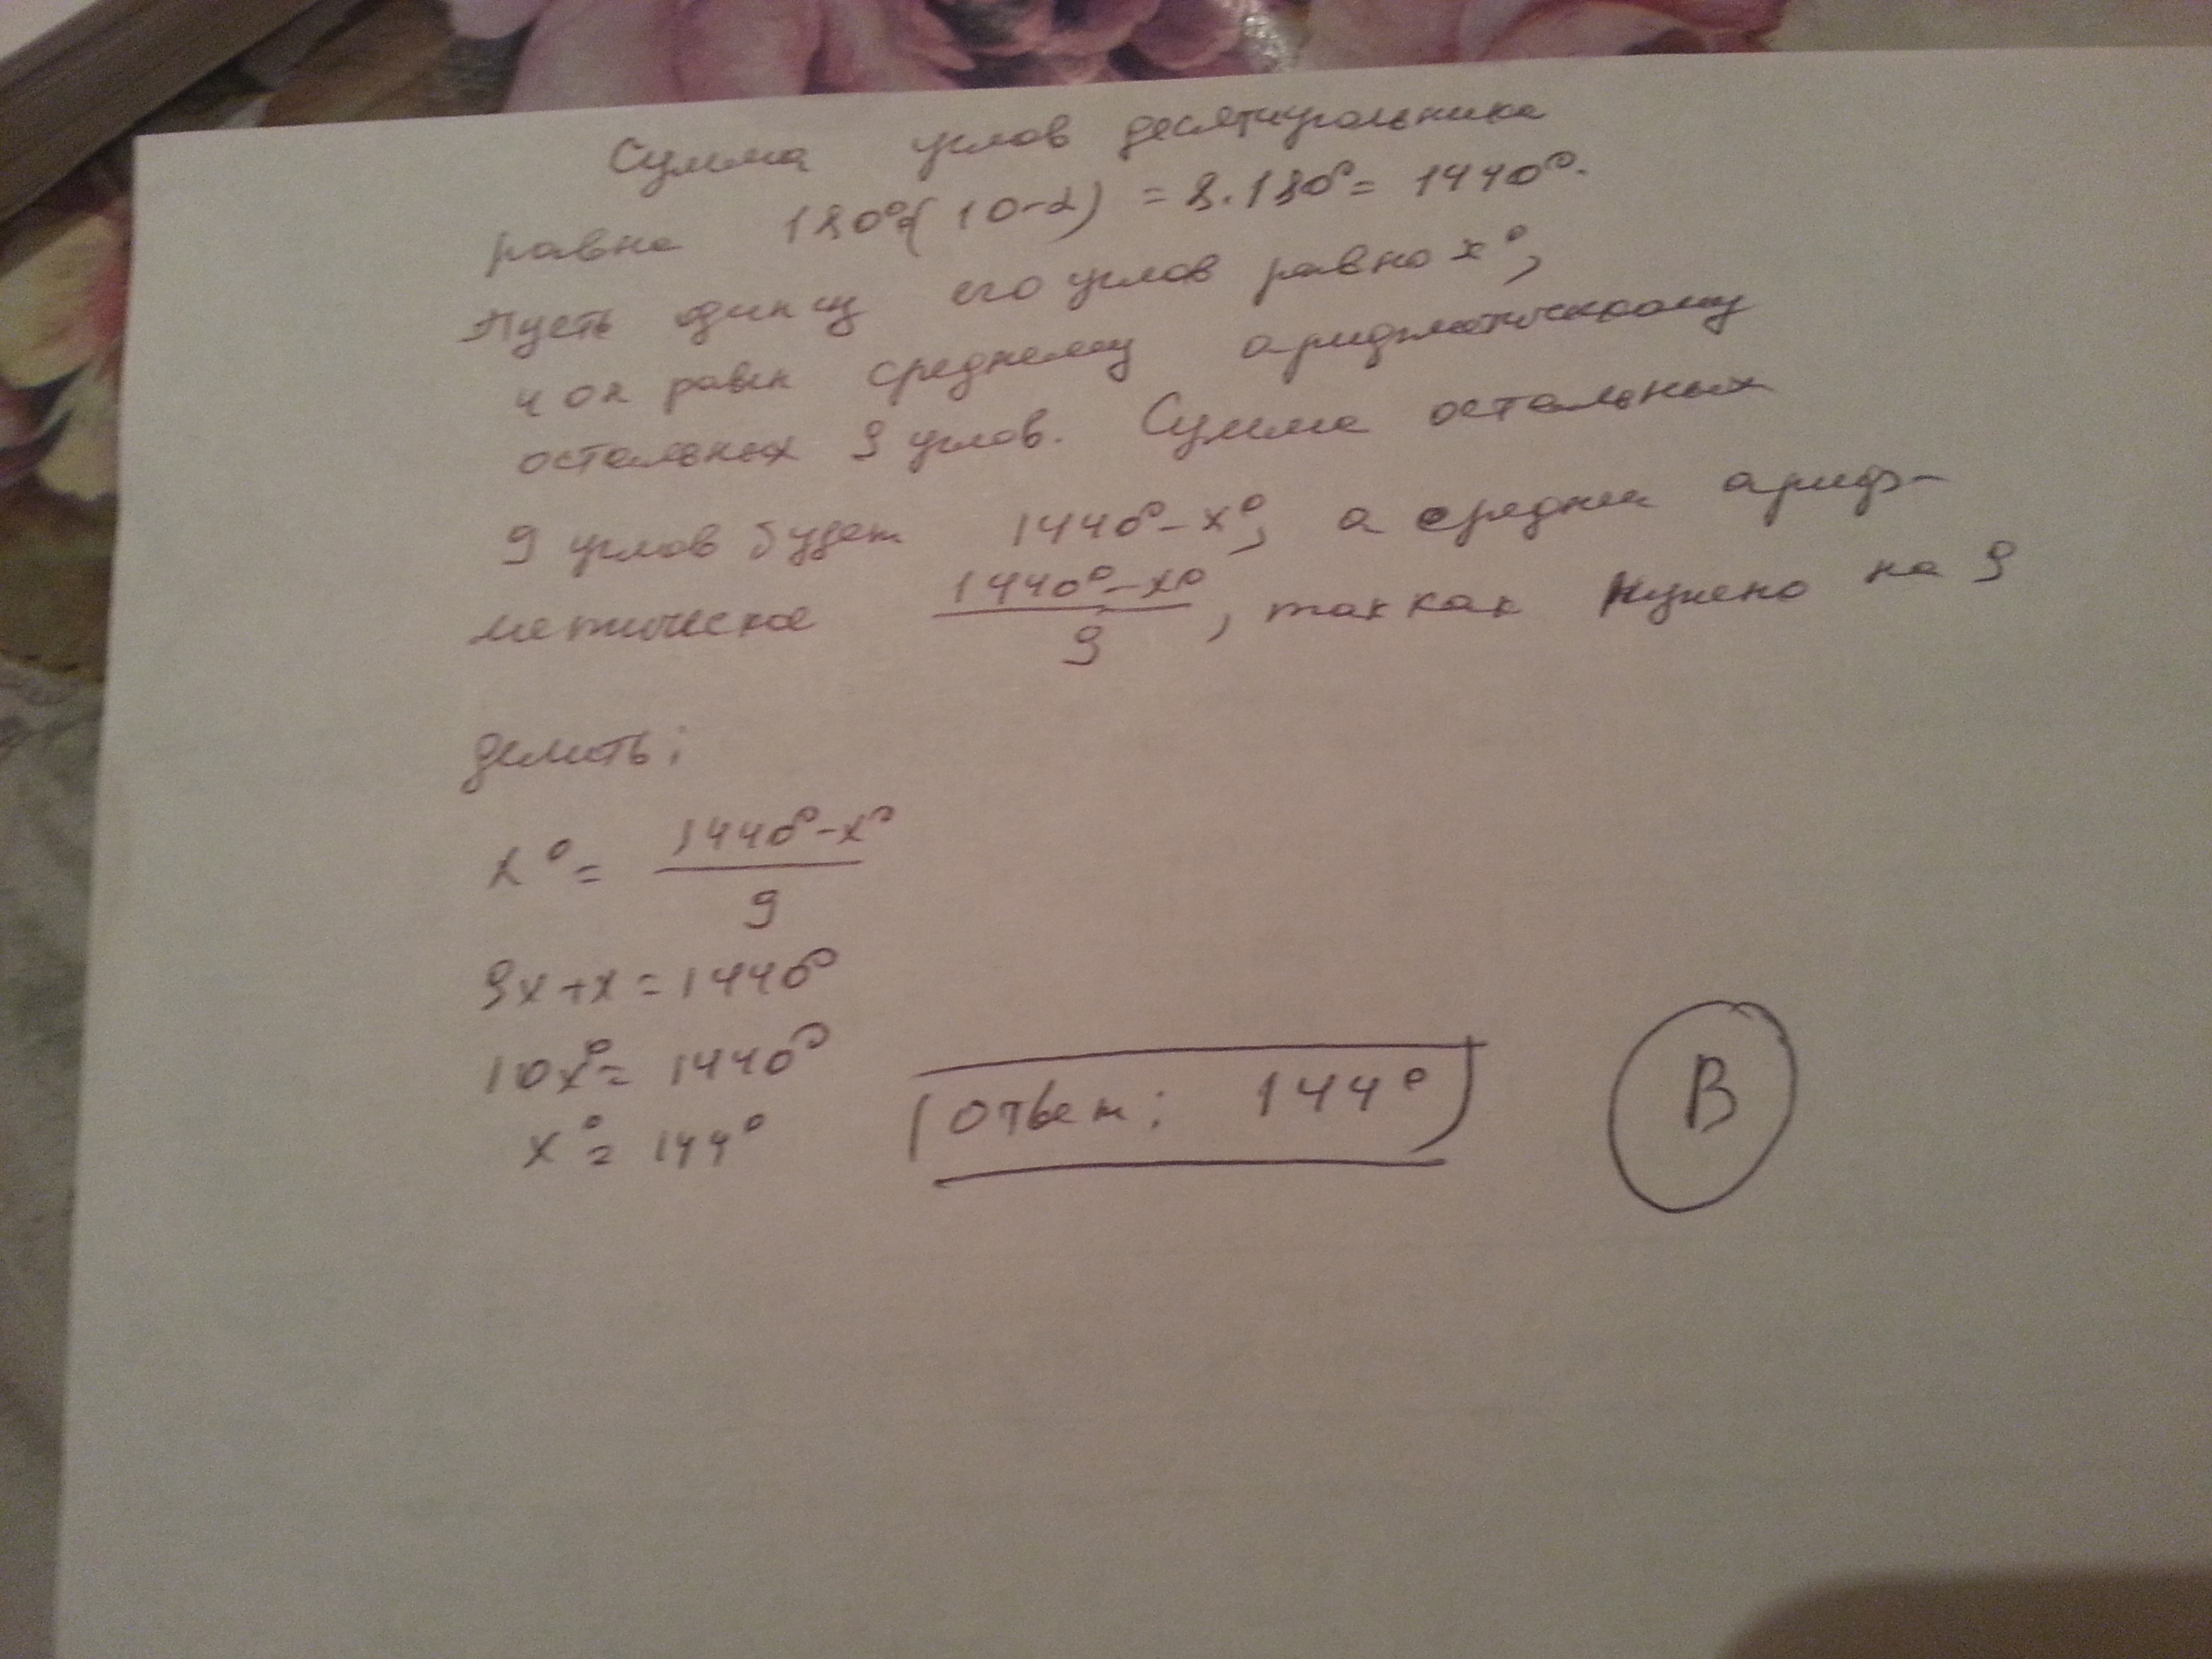 Сумма углов десятиугольника
равна 180°(10-2) = 8·180° = 1440°.
Пусть один из его углов равно x°,
и он равен среднему арифметическому
остальных 9 углов. Сумма остальных
9 углов будет 1440°-x°, а средне ариф-
метическое (1440°-x°)/9, так как нужно на 9
делить;
x° = (1440°-x°)/9
9x+x=1440°
10x°= 1440°
x°= 144°
Ответ: 144°
B